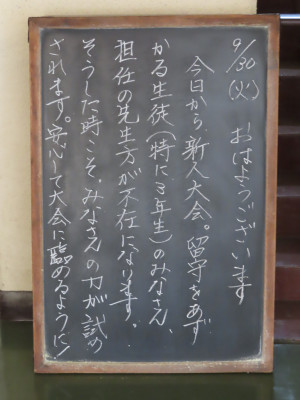 9/30(火) おはようございます
今日から、新人大会。留守をあず
かる生徒(特に、3年生)のみなさん、
担任の先生方が不在になります。
そうした時こそ、みなさんの力が試め
されます。安心して大会に臨めるように!